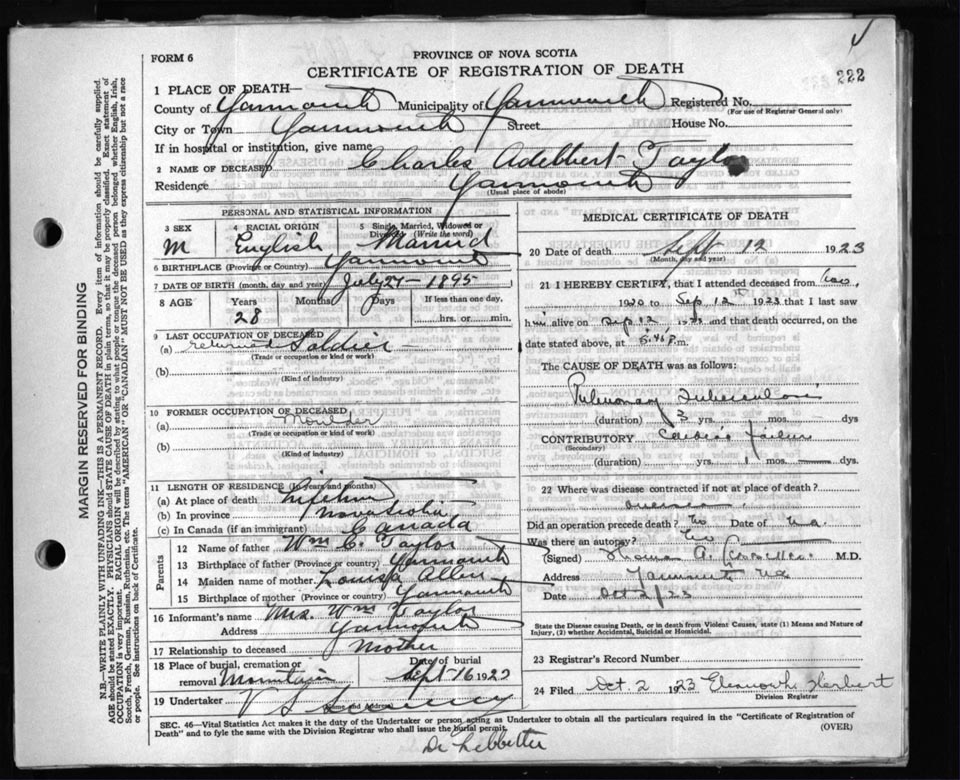 FORM 6
PROVINCE OF NOVA SCOTIA
CERTIFICATE OF REGISTRATION OF DEATH
222
1 PLACE OF DEATH—
County of Yarmouth Municipality of Yarmouth Registered No.
(For use of Registrar General only)
City or Town Yarmouth Street House No.
If in hospital or institution, give name
2 NAME OF DECEASED Charles Adelbert Taylor
Residence Yarmouth
(Usual place of abode)
PERSONAL AND STATISTICAL INFORMATION
3 SEX 4 RACIAL ORIGIN 5 Single, Married, Widowed or Divorced (Write the word)
M English Married
6 BIRTHPLACE (Province or Country) Yarmouth
7 DATE OF BIRTH (month, day, and year) July 27 - 1895
8 AGE Years Months Days If less than one day,
28 hrs. or min.
9 LAST OCCUPATION OF DECEASED
(a) returned Soldier
(Trade or occupation or kind of work)
(b)
(Kind of industry)
10 FORMER OCCUPATION OF DECEASED
(a) Moulder
(Trade or occupation or kind of work)
(b)
(Kind of industry)
11 LENGTH OF RESIDENCE (in years and months)
(a) At place of death Lifetime
(b) In province Nova Scotia
(c) In Canada (if an immigrant) Canada
Parents
12 Name of father Wm C. Taylor
13 Birthplace of father (Province or country) Yarmouth
14 Maiden name of mother Louisa Allen
15 Birthplace of mother (Province or country) Yarmouth
16 Informant's name Mrs. Wm Taylor
Address Yarmouth
17 Relationship to deceased Mother
18 Place of burial, cremation or removal Mountain Date of burial Sept 16 1923
19 Undertaker V S Sweeney
(Name and address)
MEDICAL CERTIFICATE OF DEATH
20 Date of death Sept 12 1923
(Month, day and year)
21 I HEREBY CERTIFY, that I attended deceased from
1920 to Sep 12 1923 that I last saw
him alive on Sep 12 1923 and that death occurred, on the
date stated above, at 5.45 P.m.
The CAUSE OF DEATH was as follows:
Pulmonary Tuberculosis
(duration) 3 yrs. mos. dys
CONTRIBUTORY Cardiac failure
(Secondary)
(duration) yrs. 1 mos. dys
22 Where was disease contracted if not at place of death?
Overseas
Did an operation precede death? No Date of
Was there an autopsy? No
(Signed) Thomas A. M.D.
Address Yarmouth NS
Date Oct 2/23
State the Disease causing Death, or in death from Violent Causes, state (1) Means and Nature of Injury, (2) whether Accidental, Suicidal or Homicidal.
23 Registrar's Record Number
24 Filed Oct. 2 1923 Eleanor L. Herbert
Division Registrar
SEC. 46—Vital Statistics Act makes it the duty of the Undertaker or person acting as Undertaker to obtain all the particulars required in the "Certificate of Registration of
Death" and to fyle the same with the Division Registrar who shall issue the burial permit. (OVER)
MARGIN RESERVED FOR BINDING
N.B.—WRITE PLAINLY WITH UNFADING INK—THIS IS A PERMANENT RECORD. Every item of information should be carefully supplied.
AGE should be stated EXACTLY. PHYSICIANS should STATE CAUSE OF DEATH in plain terms, so that it may be properly classified. Exact statement of
OCCUPATION is very important. RACIAL ORIGIN will be described by stating to what people or tongue the deceased person belonged whether English, Irish,
Scotch, French, German, Russian, Ruthenian, etc. The terms "AMERICAN" or "CANADIAN" MUST NOT BE USED as they express citizenship but not a race
or people. See instructions on back of Certificate.